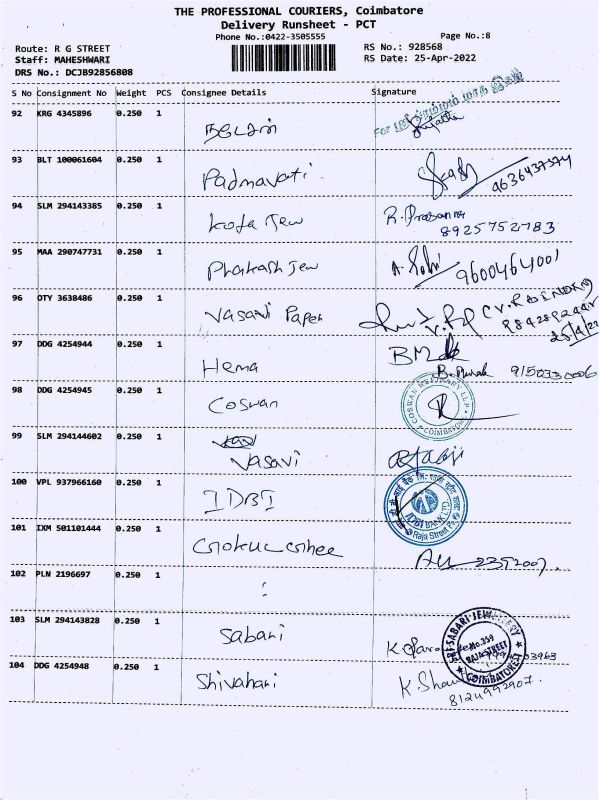 THE PROFESSIONAL COURIERS, Coimbatore
Delivery Runsheet - PCT
Phone No.:0422-3505555
Page No.:8
Route: R G STREET
RS No.: 928568
Staff: MAHESHWARI
RS Date: 25-Apr-2022
DRS No.: DCJB92856808
S No Consignment No Weight PCS Consignee Details Signature
92 KRG 4345896 0.250 1
93 BLT 100061604 0.250 1 Padmavati 9636437574
94 SLM 294143385 0.250 1 Kota Jew R. Prasanna 8925752783
95 MAA 290747731 0.250 1 Phakash Jew 9600464001
96 OTY 3638486 0.250 1 Vasavi Paper
25/4/22
97 DDG 4254944 0.250 1 Hema 9150330006
98 DDG 4254945 0.250 1 Coswan COSWAN REFINARY LLP COIMBATORE
99 SLM 294144602 0.250 1 Vasavi
100 VPL 937966160 0.250 1 IDBI IDBI BANK LTD. Raja Street
101 IXM 501101444 0.250 1 Gokul Ghee
102 PLN 2196697 0.250 1
103 SLM 294143828 0.250 1 Sabari SRI SABARI JEWELLERY No.359 RAJA STREET COIMBATORE
104 DDG 4254948 0.250 1 Shivahari 8124992907.